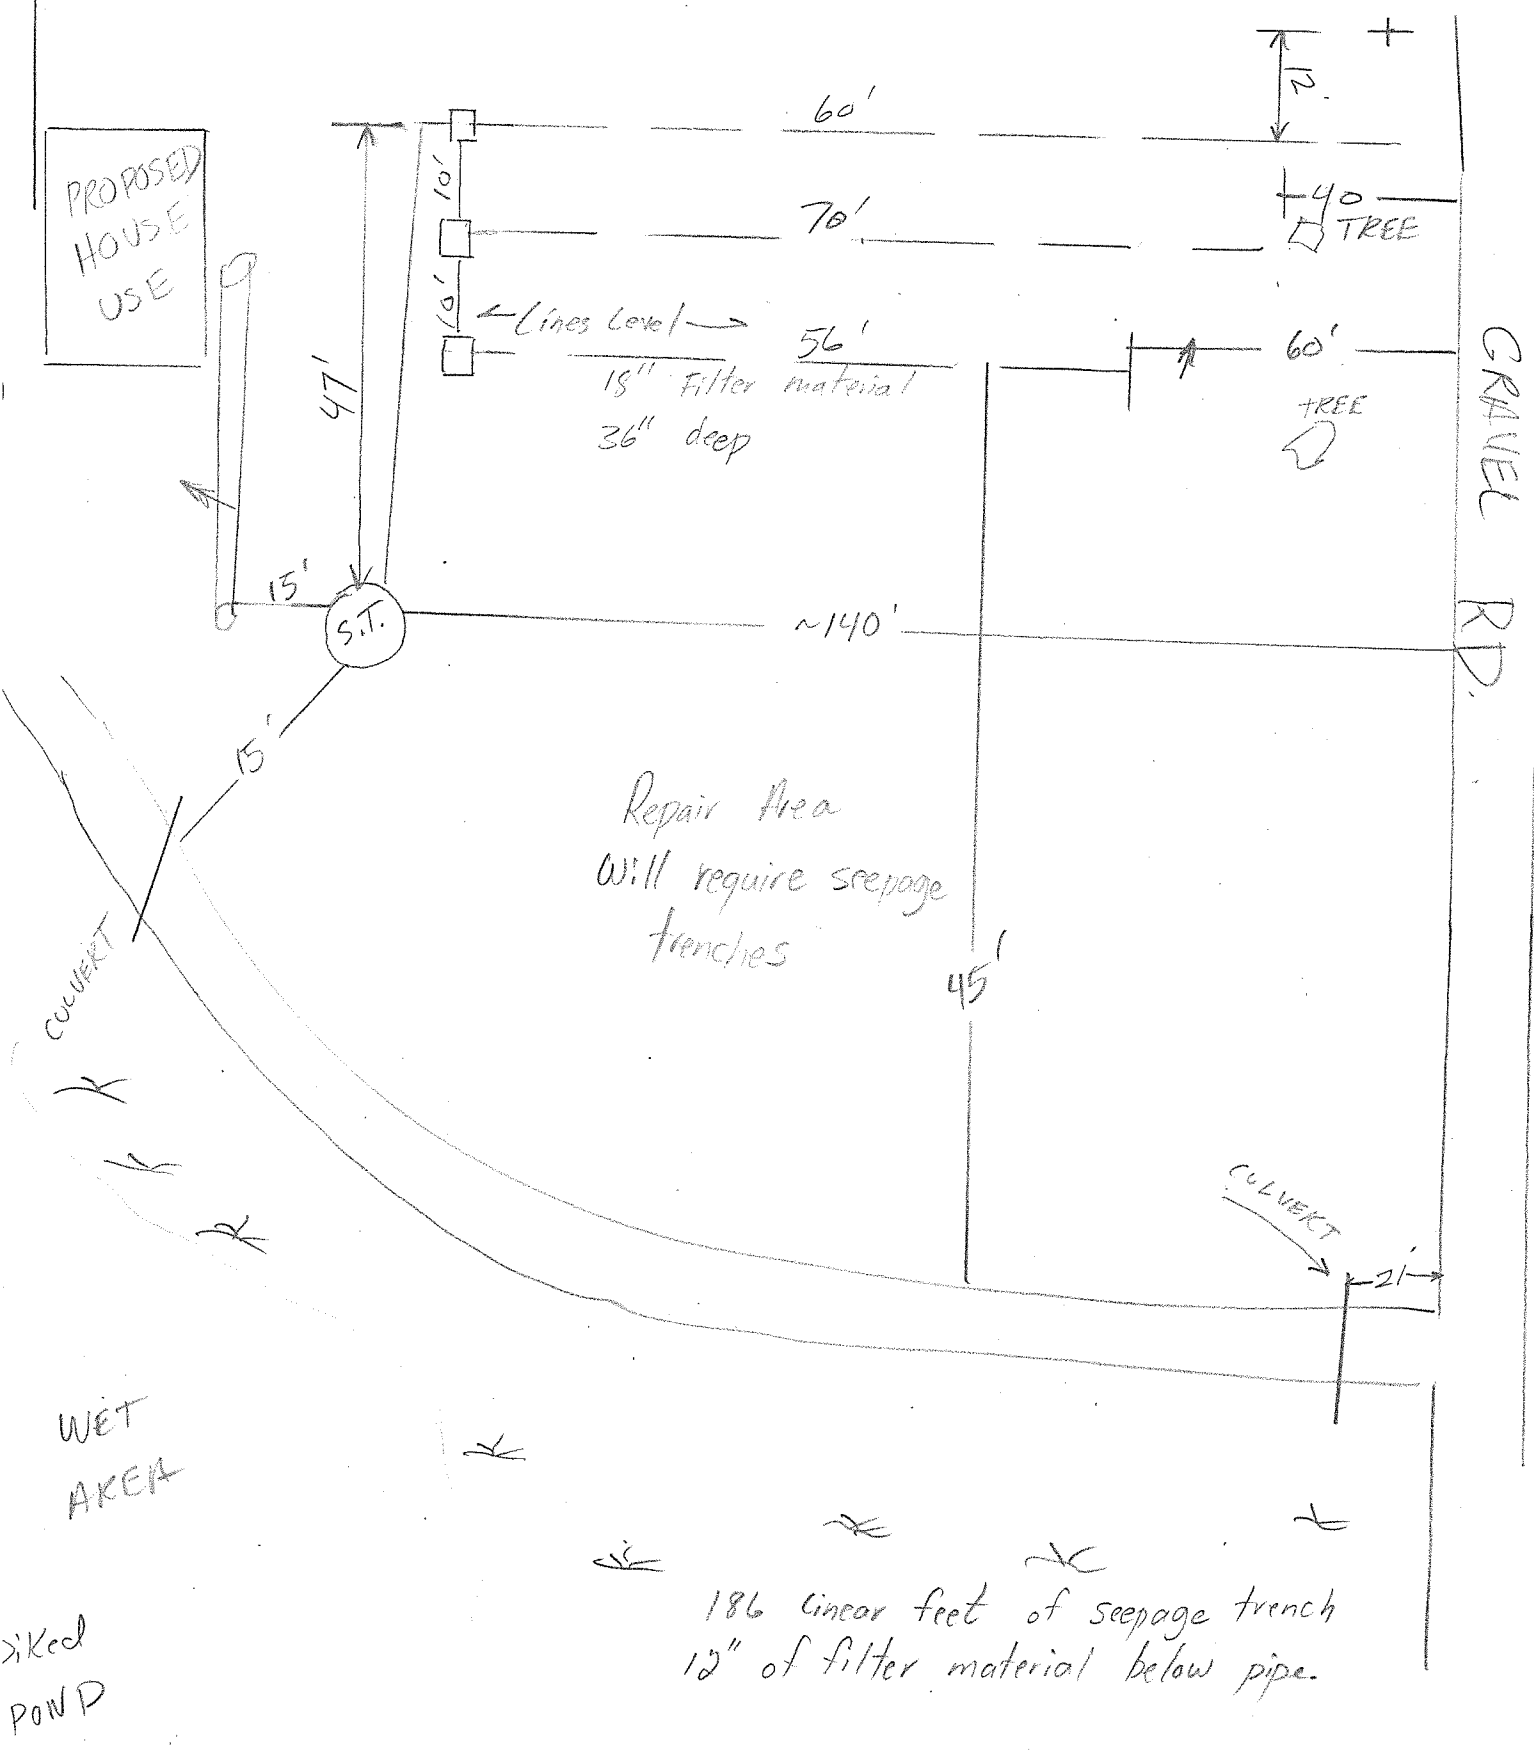 12'
60'
PROPOSED
HOUSE
USE
10'
40
TREE
70'
10'
Lines Level
56'
60'
18" Filter material
36" deep
TREE
47'
GRAVEL RD.
15'
S.T.
~140'
15'
Repair Area
Will require seepage
trenches
45'
CULVERT
CULVERT
21'
WET
AREA
186 linear feet of seepage trench
12" of filter material below pipe.
POND